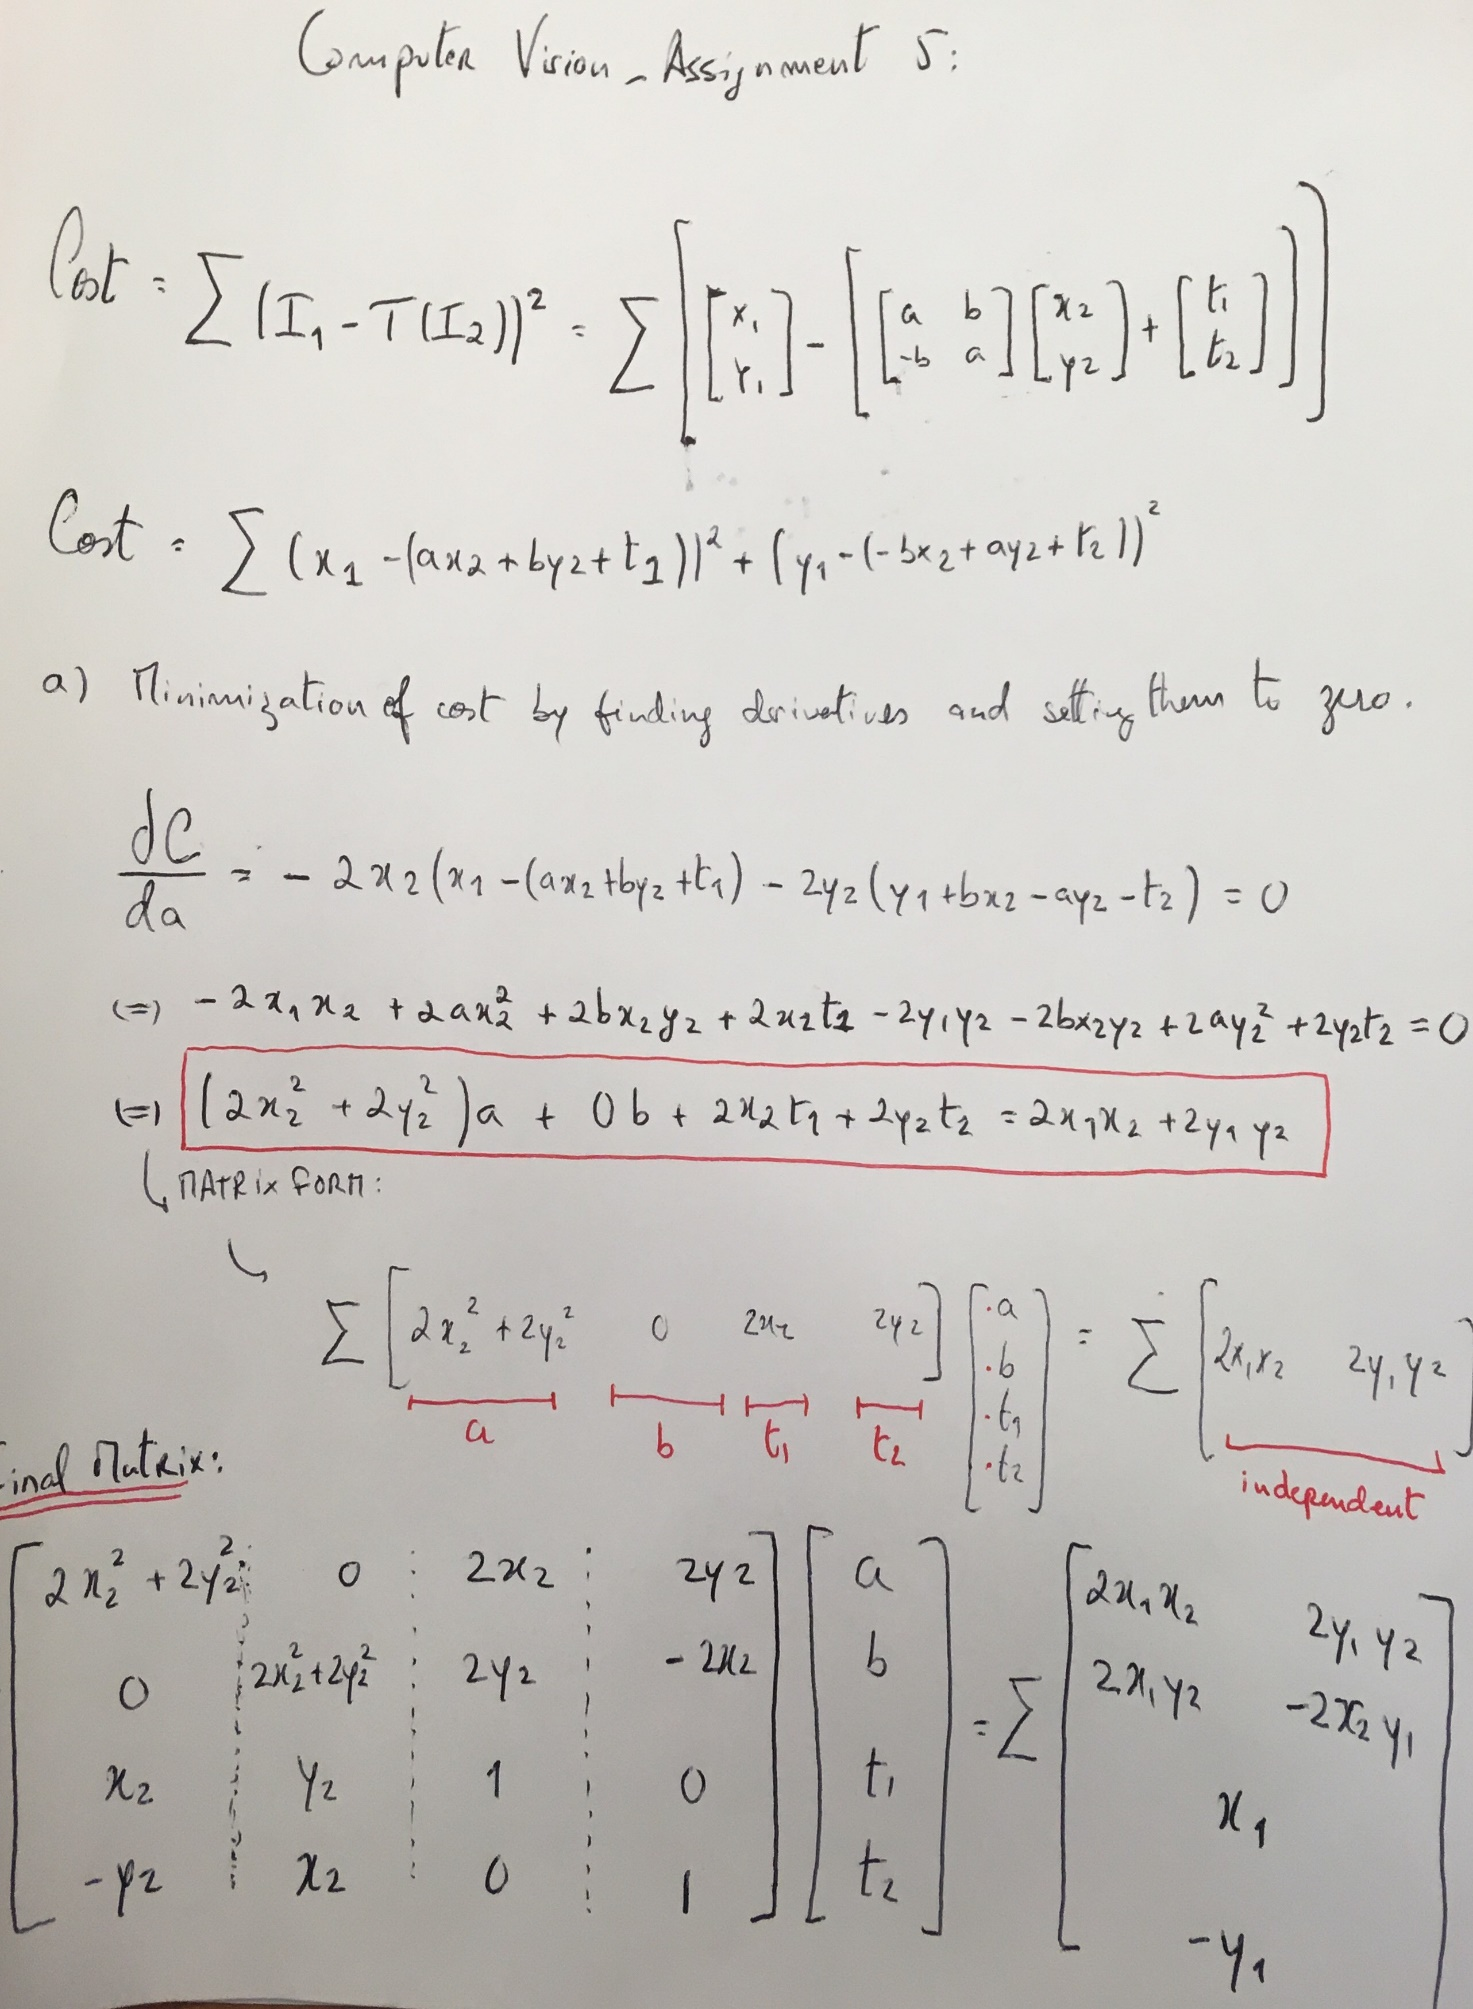 Computer Vision - Assignment 5:
Cost = ∑ (I₁ - T(I₂))² = ∑ [ [x₁ y₁] - [ [a b -b a] [x₂ y₂] + [t₁ t₂] ] ]
Cost = ∑ (x₁ -(ax₂ + by₂ + t₁))² + (y₁ -(-bx₂ + ay₂ + t₂))²
a) Minimization of cost by finding derivatives and setting them to zero.
dC/da = - 2x₂(x₁ -(ax₂ + by₂ + t₁) - 2y₂(y₁ + bx₂ - ay₂ - t₂) = 0
(=) - 2x₁x₂ + 2ax₂² + 2bx₂y₂ + 2x₂t₁ - 2y₁y₂ - 2bx₂y₂ + 2ay₂² + 2y₂t₂ = 0
(=) (2x₂² + 2y₂²)a + 0b + 2x₂t₁ + 2y₂t₂ = 2x₁x₂ + 2y₁y₂
MATRIX FORM:
∑ [2x₂² + 2y₂² 0 2x₂ 2y₂] [·a ·b ·t₁ ·t₂] = ∑ [2x₁x₂ 2y₁y₂]
a b t₁ t₂ independent
Final Matrix:
2x₂² + 2y₂² 0 2x₂ 2y₂ a 2x₁x₂ 2y₁y₂
0 2x₂²+2y₂² 2y₂ -2x₂ b = ∑ 2x₁y₂ -2x₂y₁
x₂ y₂ 1 0 t₁ x₁
-y₂ x₂ 0 1 t₂ -y₁